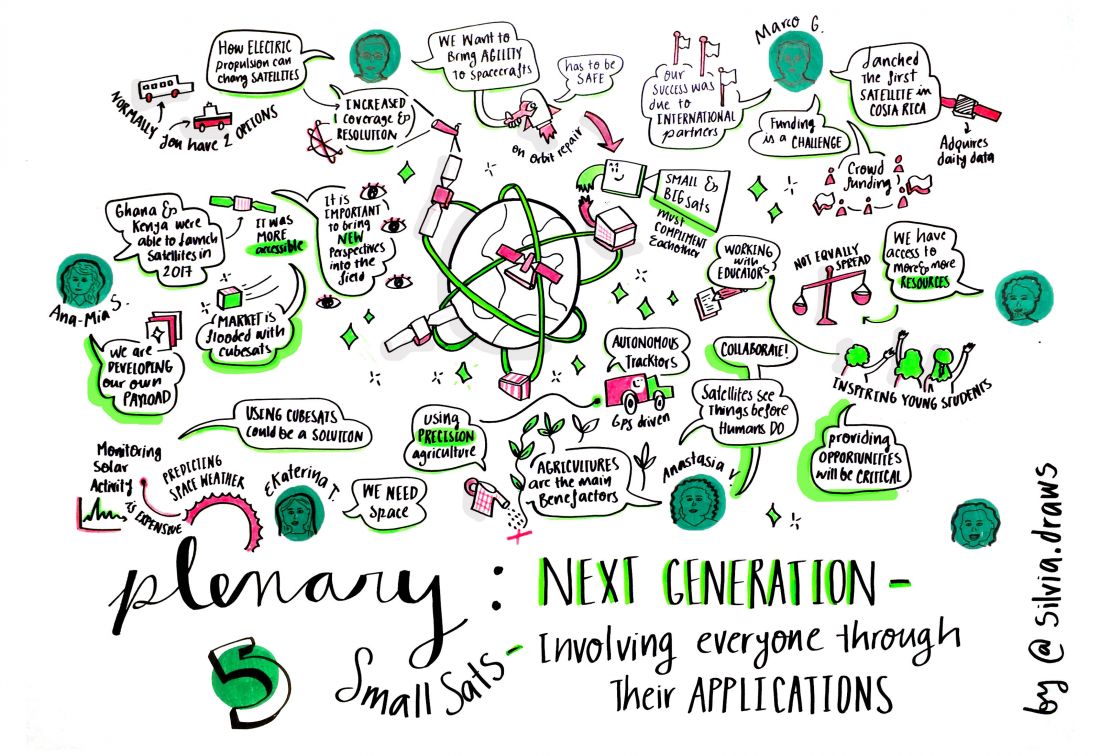 How ELECTRIC
propulsion can
chang SATELLITES
NORMALLY
you have 2 OPTIONS
INCREASED
coverage &
RESOLUTION
WE Want to
Bring AGILITY
to spacecrafts
has to be
SAFE
on orbit repair
our
SUCCESS was
due to
INTERNATIONAL
partners
Marco G.
Funding
is a CHALLENGE
Lanched
the first
SATELLITE in
COSTA RICA
Adquires
daily data
Crowd
funding
SMALL &
BIG sats
must
COMPLIMENT
Eachother
Ghana &
Kenja were
able to Launch
Satellites in
2017
IT WAS
MORE
accessible
It is
IMPORTANT
to bring
NEW
Perspectives
into the
field
Ana-Mia S.
MARKET is
flooded with
cubesats
we are
DEVELOPING
our own
PAYLOAD
WORKING
with
EDUCATORS
NOT EQUALLY
SPREAD
WE have
access to
more & more
RESOURCES
INSPIRING YOUNG STUDENTS
providing
OPPORTUNITIES
will be CRITICAL
USING CUBESATS
could be a SOLUTION
Monitoring
Solar
Activity
IS EXPENSIVE
PREDICTING
SPACE WEATHER
Ekaterina T.
WE NEED
Space
using
PRECISION
agriculture
AUTONOMOUS
Tracktors
GPS driven
AGRICULTURES
are the main
Benefactors
COLLABORATE!
Satellites see
Things before
Humans DO
Anastasia V.
plenary : NEXT GENERATION -
5
Small Sats - Involving everyone through
Their APPLICATIONS
by @silvia.draws